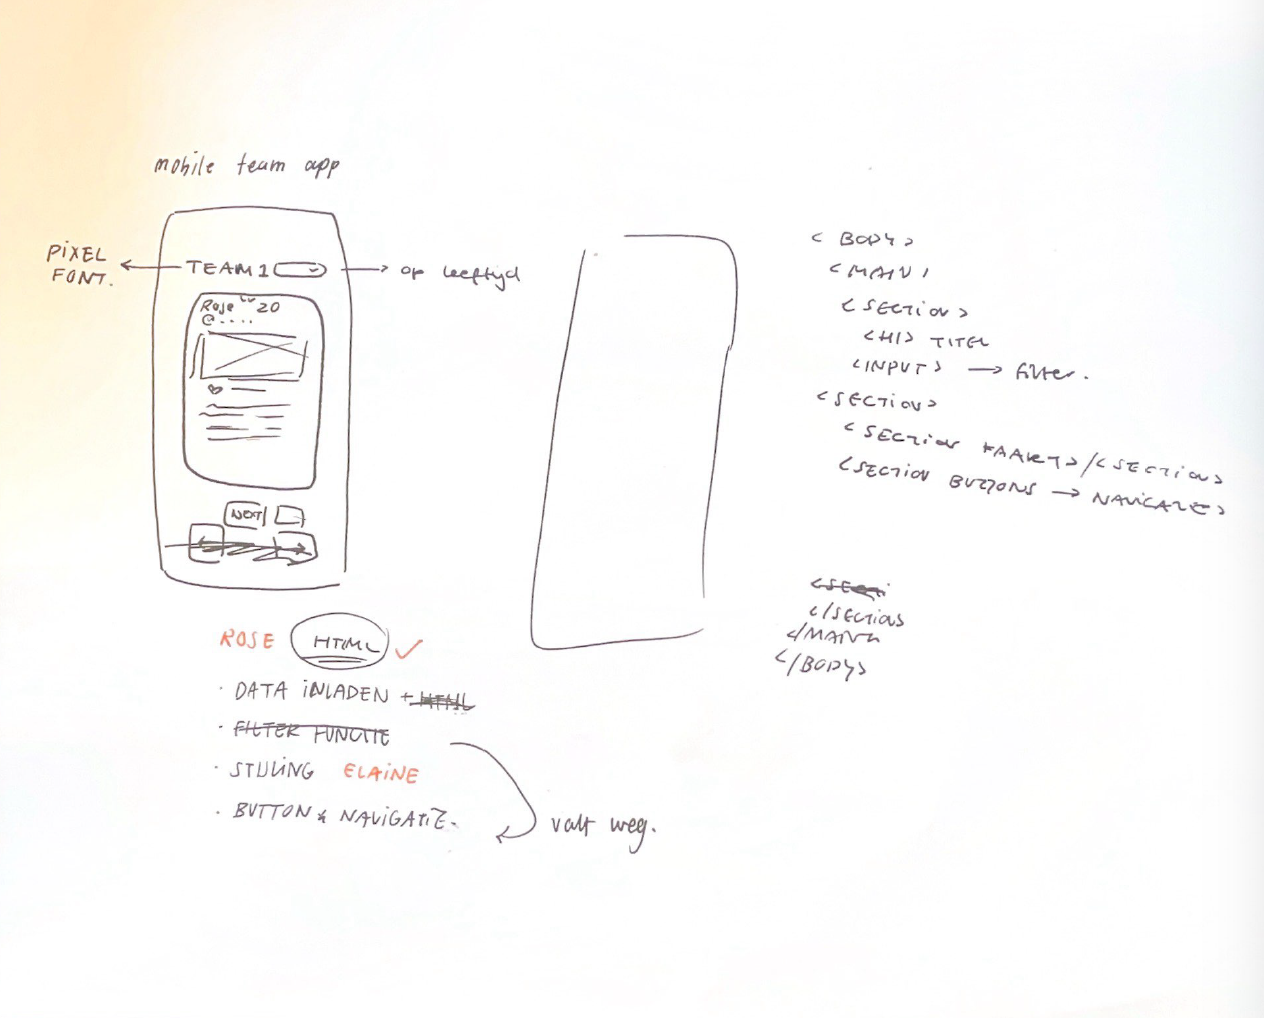 mobile team app
PIXEL
FONT.
TEAM 1
op leeftijd
Rose
20
@....
NEXT
ROSE HTML
· DATA INLADEN + HTML
· FILTER FUNCTIE
· STIJLING ELAINE
· BUTTON & NAVIGATIE.
valt weg.
< BODY>
<MAIN>
<SECTION>
<H1> TITEL
<INPUT> → filter.
<SECTION>
<SECTION KAART>/<SECTION>
<SECTION BUTTONS → NAVIGATE>
</SECTION>
</MAIN>
</BODY>